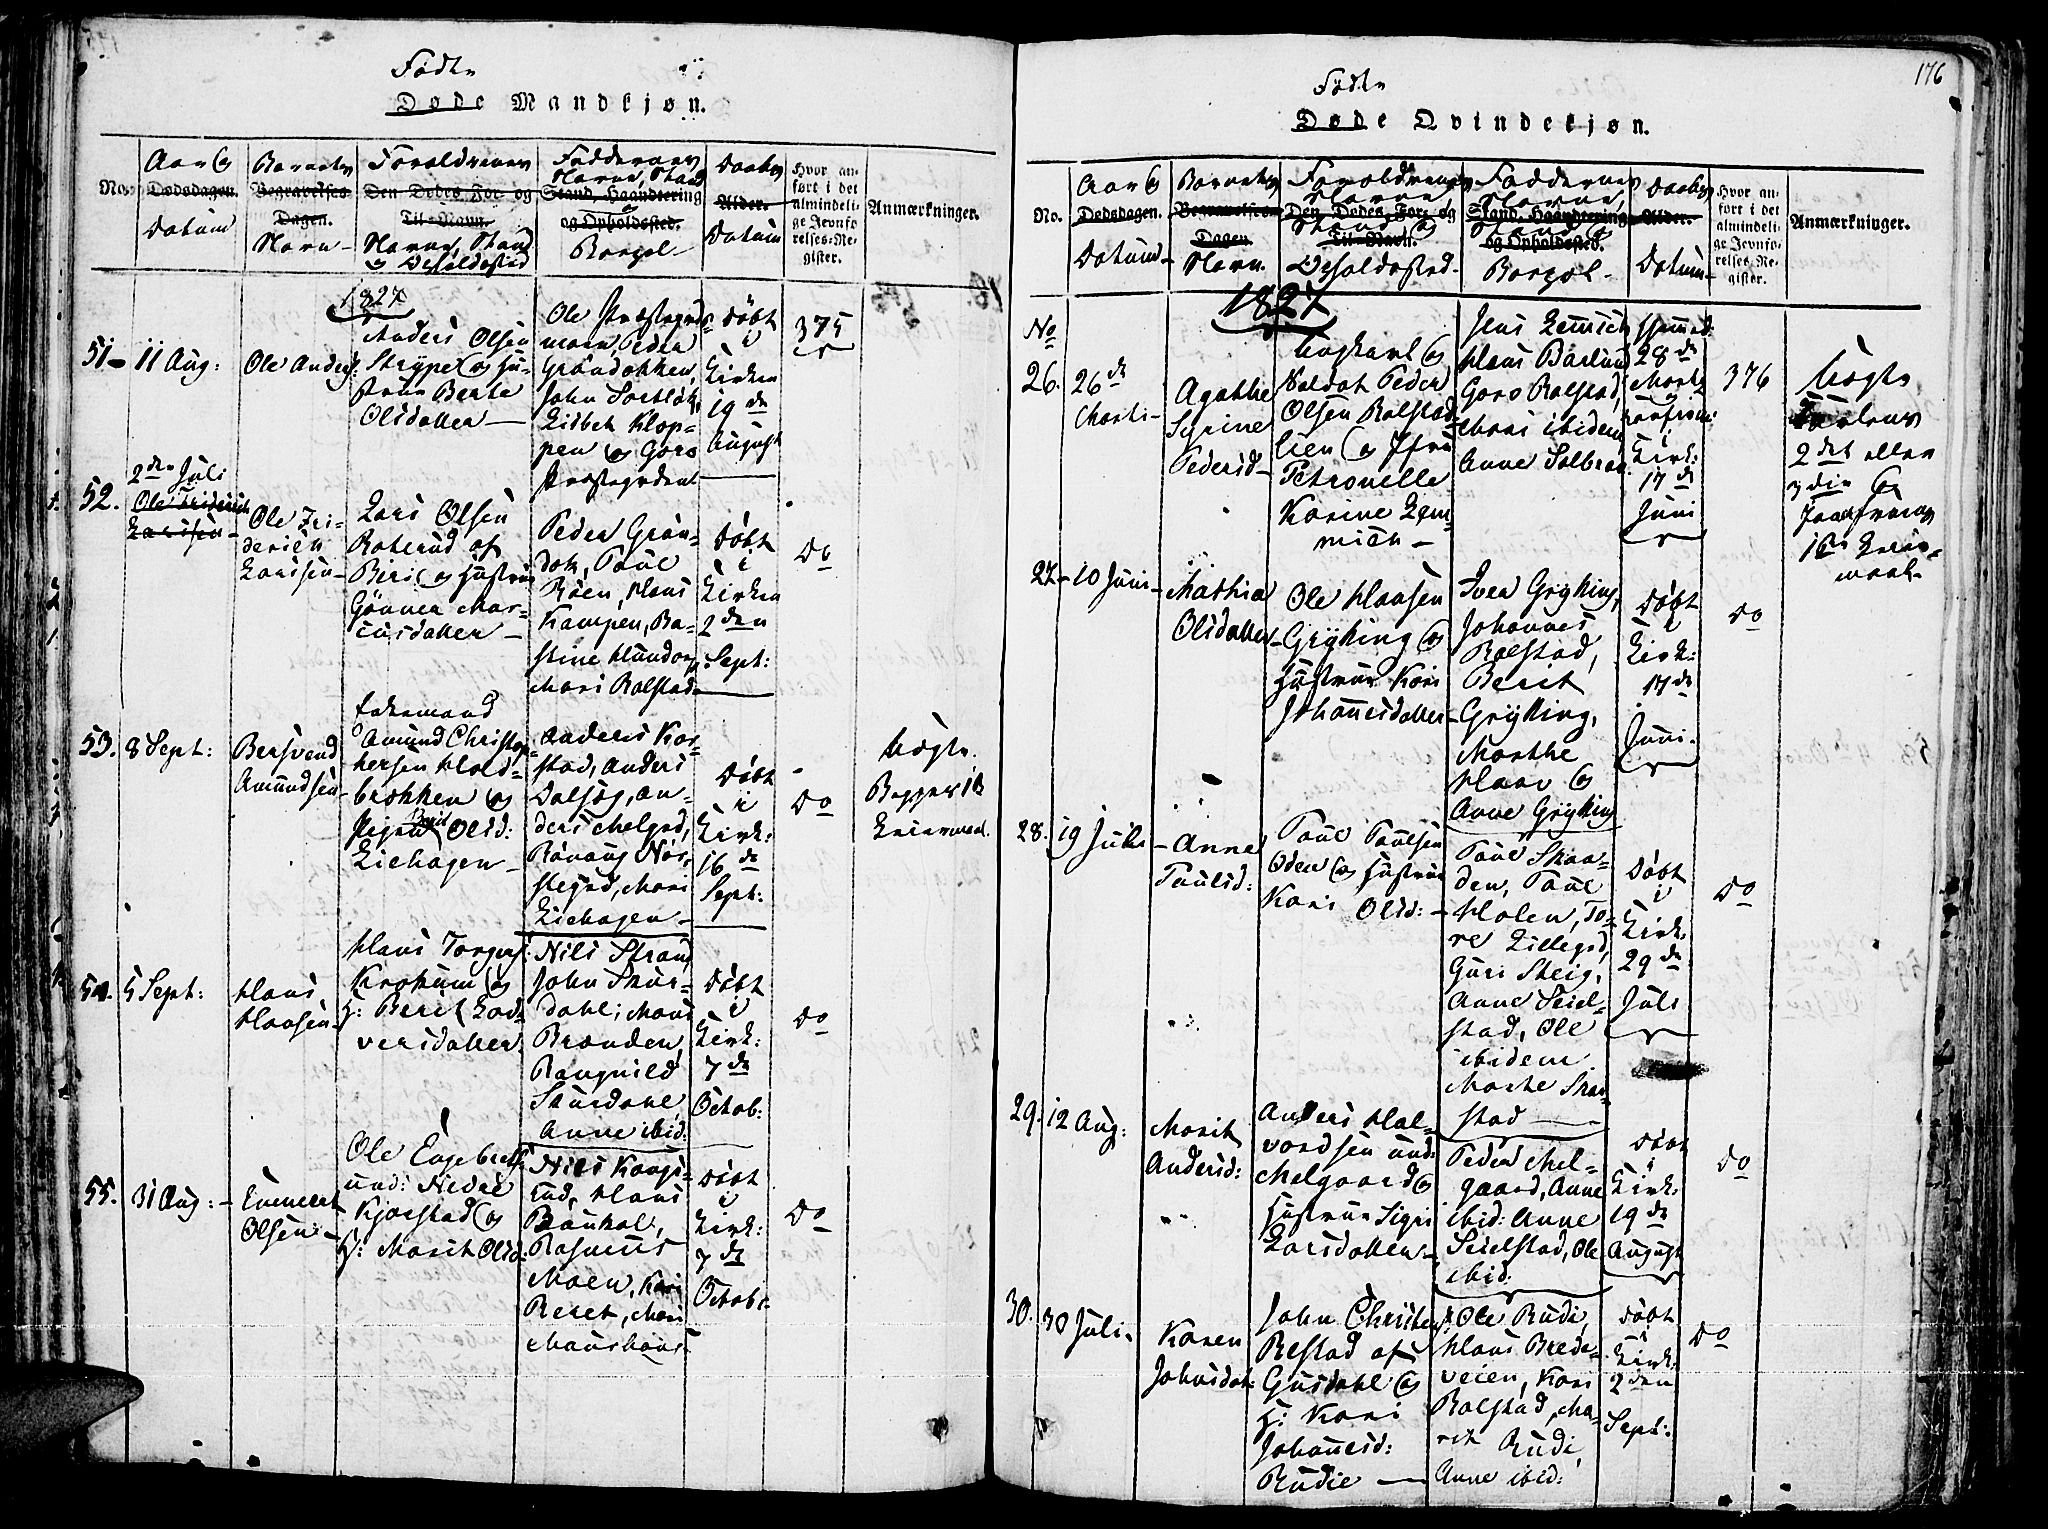 Fødte
Døde Mandkjøn.
No.
Aar og
Dødsdagen.
Datum
Barnets
Begravelses-
Dagen.
Navn
Forældrenes
Den Dødes For- og
Til-Navn.
Navne, Stand
og Opholdssted
Faddernes
Navne, Stand
Stand, Haandtering
og Opholdssted.
Daabs
Alder.
Datum
Hvor an-
ført i det
almindeli-
ge Jevnfø-
relses-Re-
gister.
Anmærkninger.
1827
51
11 Aug:
Ole Anders:
Anders Olsen
Strype og Hu-
strue Berte
Olsdatter
Ole Præstegrds-
moen, Peder
Grøndokken,
John Sortløk,
Lisbet Klop-
pen og Goro
Præstegrdent
Døbt
i
Kirken
19 de
August
375
52.
2den Juli
Ole Friderich
Larssen
Ole Fri-
derich
Larssen
Lars Olsen
Roterud af
Biri og Hustrue
Gønner Mar-
cusdatter
Peder Grøn-
dok, Poul
Røen, Hans
Kampen, Ba-
stine Hundorp,
Mari Rolstad
Døbt
i
Kirken
2den
Sept:
Do
53.
8 Sept:
Bersvend
Amundsen
Enkemand
Amund Christop-
hersen Hold-
brokken og
Pigen Berit Olsd:
Liehagen
Anders Kor-
stad, Anders
Dalseg, An-
ders Melgrd,
Rønnaug Nør-
stegrd, Mari
Liehagen
Døbt
i
Kirk:
16 de
Sept:
Do
Uægte.
Begges 1ste
Leiermaal.
54.
5 Sept:
Hans
Hansen
Hans Torgers:
Krokum og
H: Berit Lod-
versdatter
Nils Strand
John Skurs-
dahl, Mari
Brænden,
Rangnild
Skursdahl,
Anne ibid:
Døbt
i
Kirk:
7 de
Octob:
Do
55.
31 Aug:
Engebret
Olsen
Ole Engebrets:
und: Nedre
Kjorstad og
H: Marit Olsd:
Nils Kongs-
rud, Hans
Bønhol,
Rasmus
Moen, Kari
Beret, Mari
Døbt
i
Kirk:
7 de
Octob:
Do
176
Fødte
Døde Qvindekjøn.
No.
Aar og
Dødsdagen.
Datum
Barnets
Begravelses-
Dagen.
Navn.
Forældrenes
Navne,
Den Dødes For- og
Stand og
Til-Navn.
Opholdssted
Faddernes
Navne,
Stand, Haandtering
Stand og
og Opholdssted.
Daabs
Alder.
Datum
Hvor an-
ført i det
almindeli-
ge Jevnfø-
relses-Re-
gister.
Anmærkninger.
1827
No
26.
26 de
Marts
Agathe
Syrine
Pedersd
Ungkarl og
Soldat Peder
Olsen Rolstad-
lien og Jfru
Petronelle
Karine Lem-
mich
Jens Lemmich
Hans Barlund
Goro Rolstad,
Mari ibidem
Anne Solbraa
Hjemmed:
28 de
Marts
Kirk:
17 de
Juni
376
Uægte
2det eller
3die og
1ste Leier-
maal
27
10 Juni
Mathia
Olsdatter
Ole Hansen
Gryting og
Hustrue Kari
Johannesdatter
Iver Gryting,
Johannes
Rolstad,
Berit
Gryting,
Marthe
Haav og
Anne Gryting
Døbt
i
Kirk:
17 de
Juni
Do
28.
19 Juli
Anne
Poulsd:
Poul Poulsen
Oden og Hustrue
Kari Olsd:
Poul Skaa-
den, Poul
Holen, To-
re Lillegrd,
Guri Steig,
Anne Seiel-
stad, Ole
ibidem
Marte Skar-
stad
Døbt
i
Kirk:
29 de
Juli
Do
29.
12 Aug:
Marit
Andersd:
Anders Hal-
vordsen und:
Melgaard og
Hustrue Sigri
Larsdatter
Peder Mel-
gaard, Anne
ibid: Anne
Seielstad, Ole
ibid:
Døbt
i
Kirk:
19 de
August
Do
30.
30 Juli
Karen
Johnsdat:
John Christens:
Bestad af
Gusdahl og
H: Kari
Johannesd:
Rudie
Ole Rudi,
Hans Brede-
veien, Kari
Rolstad, Ma-
rit Rudi,
Anne ibid:
Døbt
i
Kirk:
2den
Sept:
Do